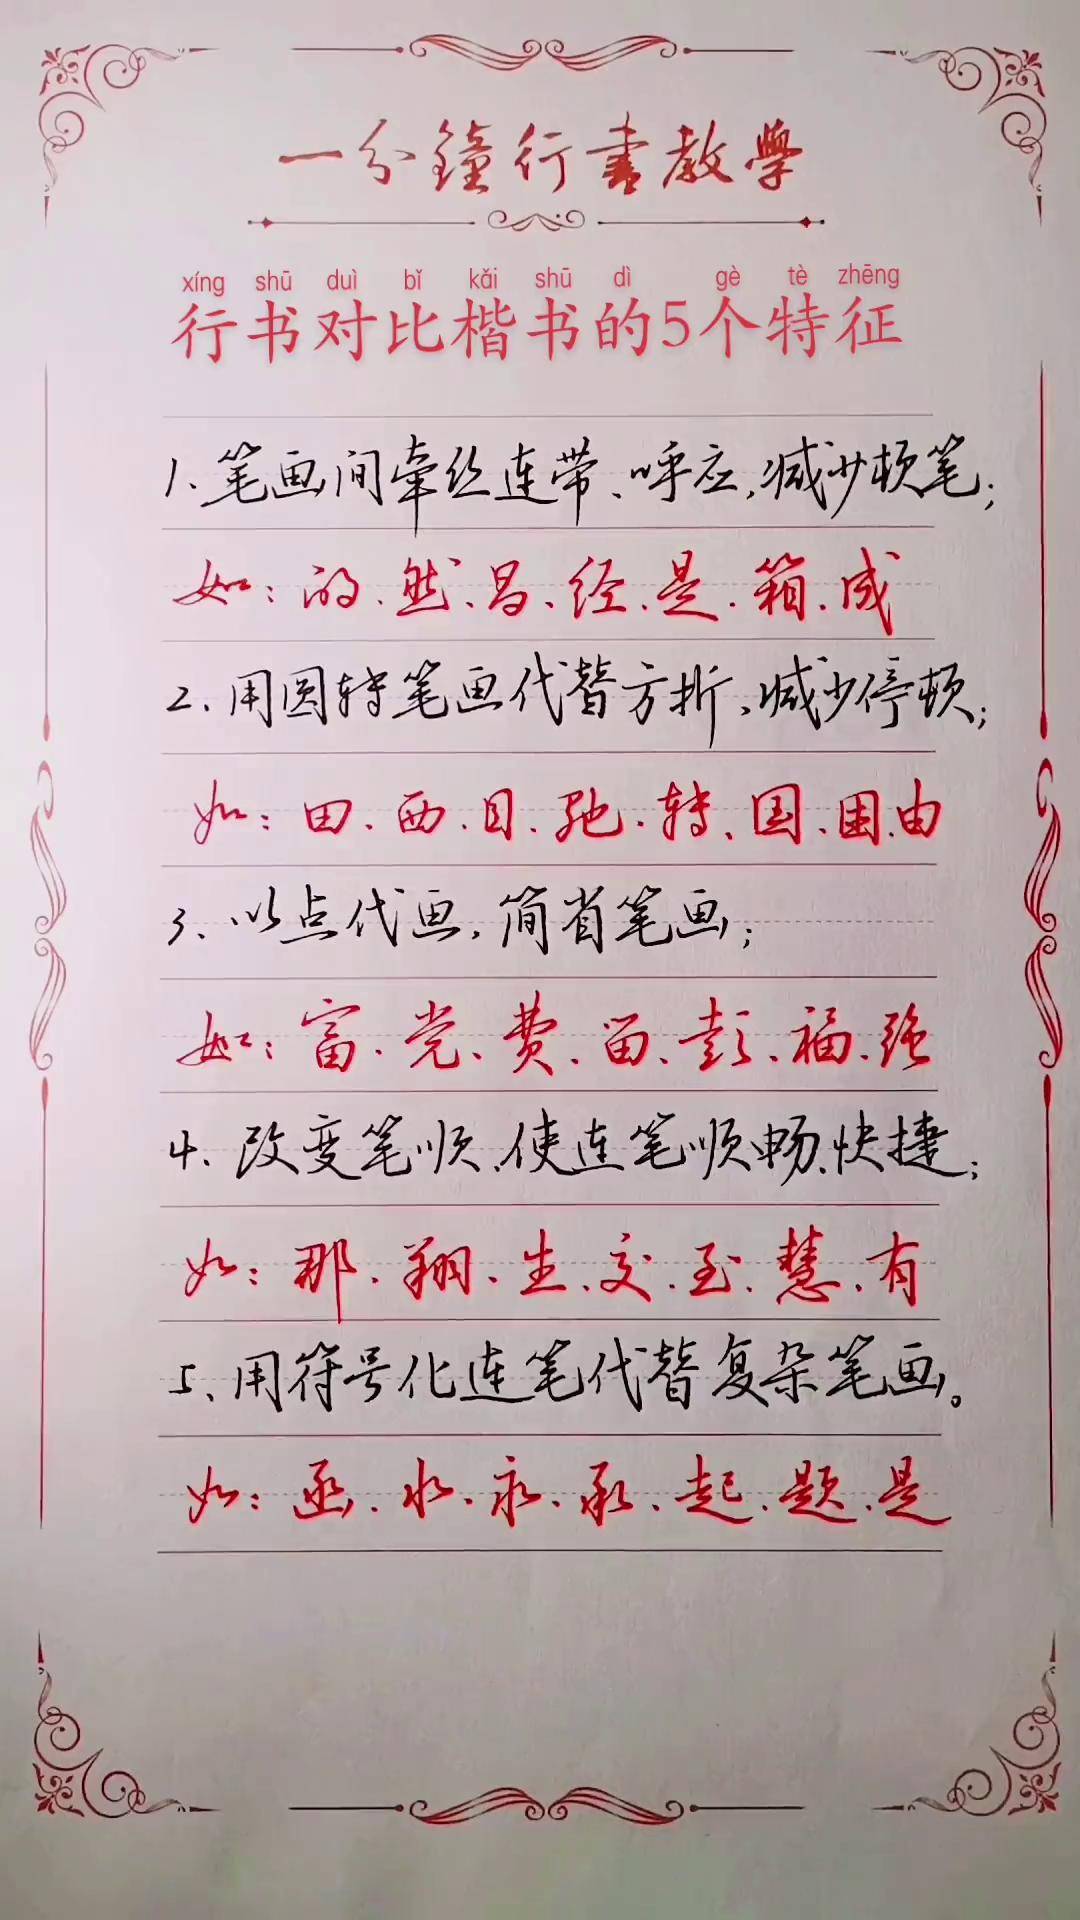 一分鐘行書教學
xíng shū duì bǐ kǎi shū dì gè tè zhēng
行书对比楷书的5个特征
1、笔画间牵丝连带、呼应,减少顿笔;
如:的、然、昌、经、是、箱、成
2、用圆转笔画代替方折,减少停顿;
如:田、西、目、驰、转、国、困、由
3、以点代画,简省笔画;
如:富、党、费、留、彭、福、强
4、改变笔顺、使连笔顺畅、快捷;
如:那、翔、生、交、至、慧、有
5、用符号化连笔代替复杂笔画。
如:函、水、永、承、起、题、是